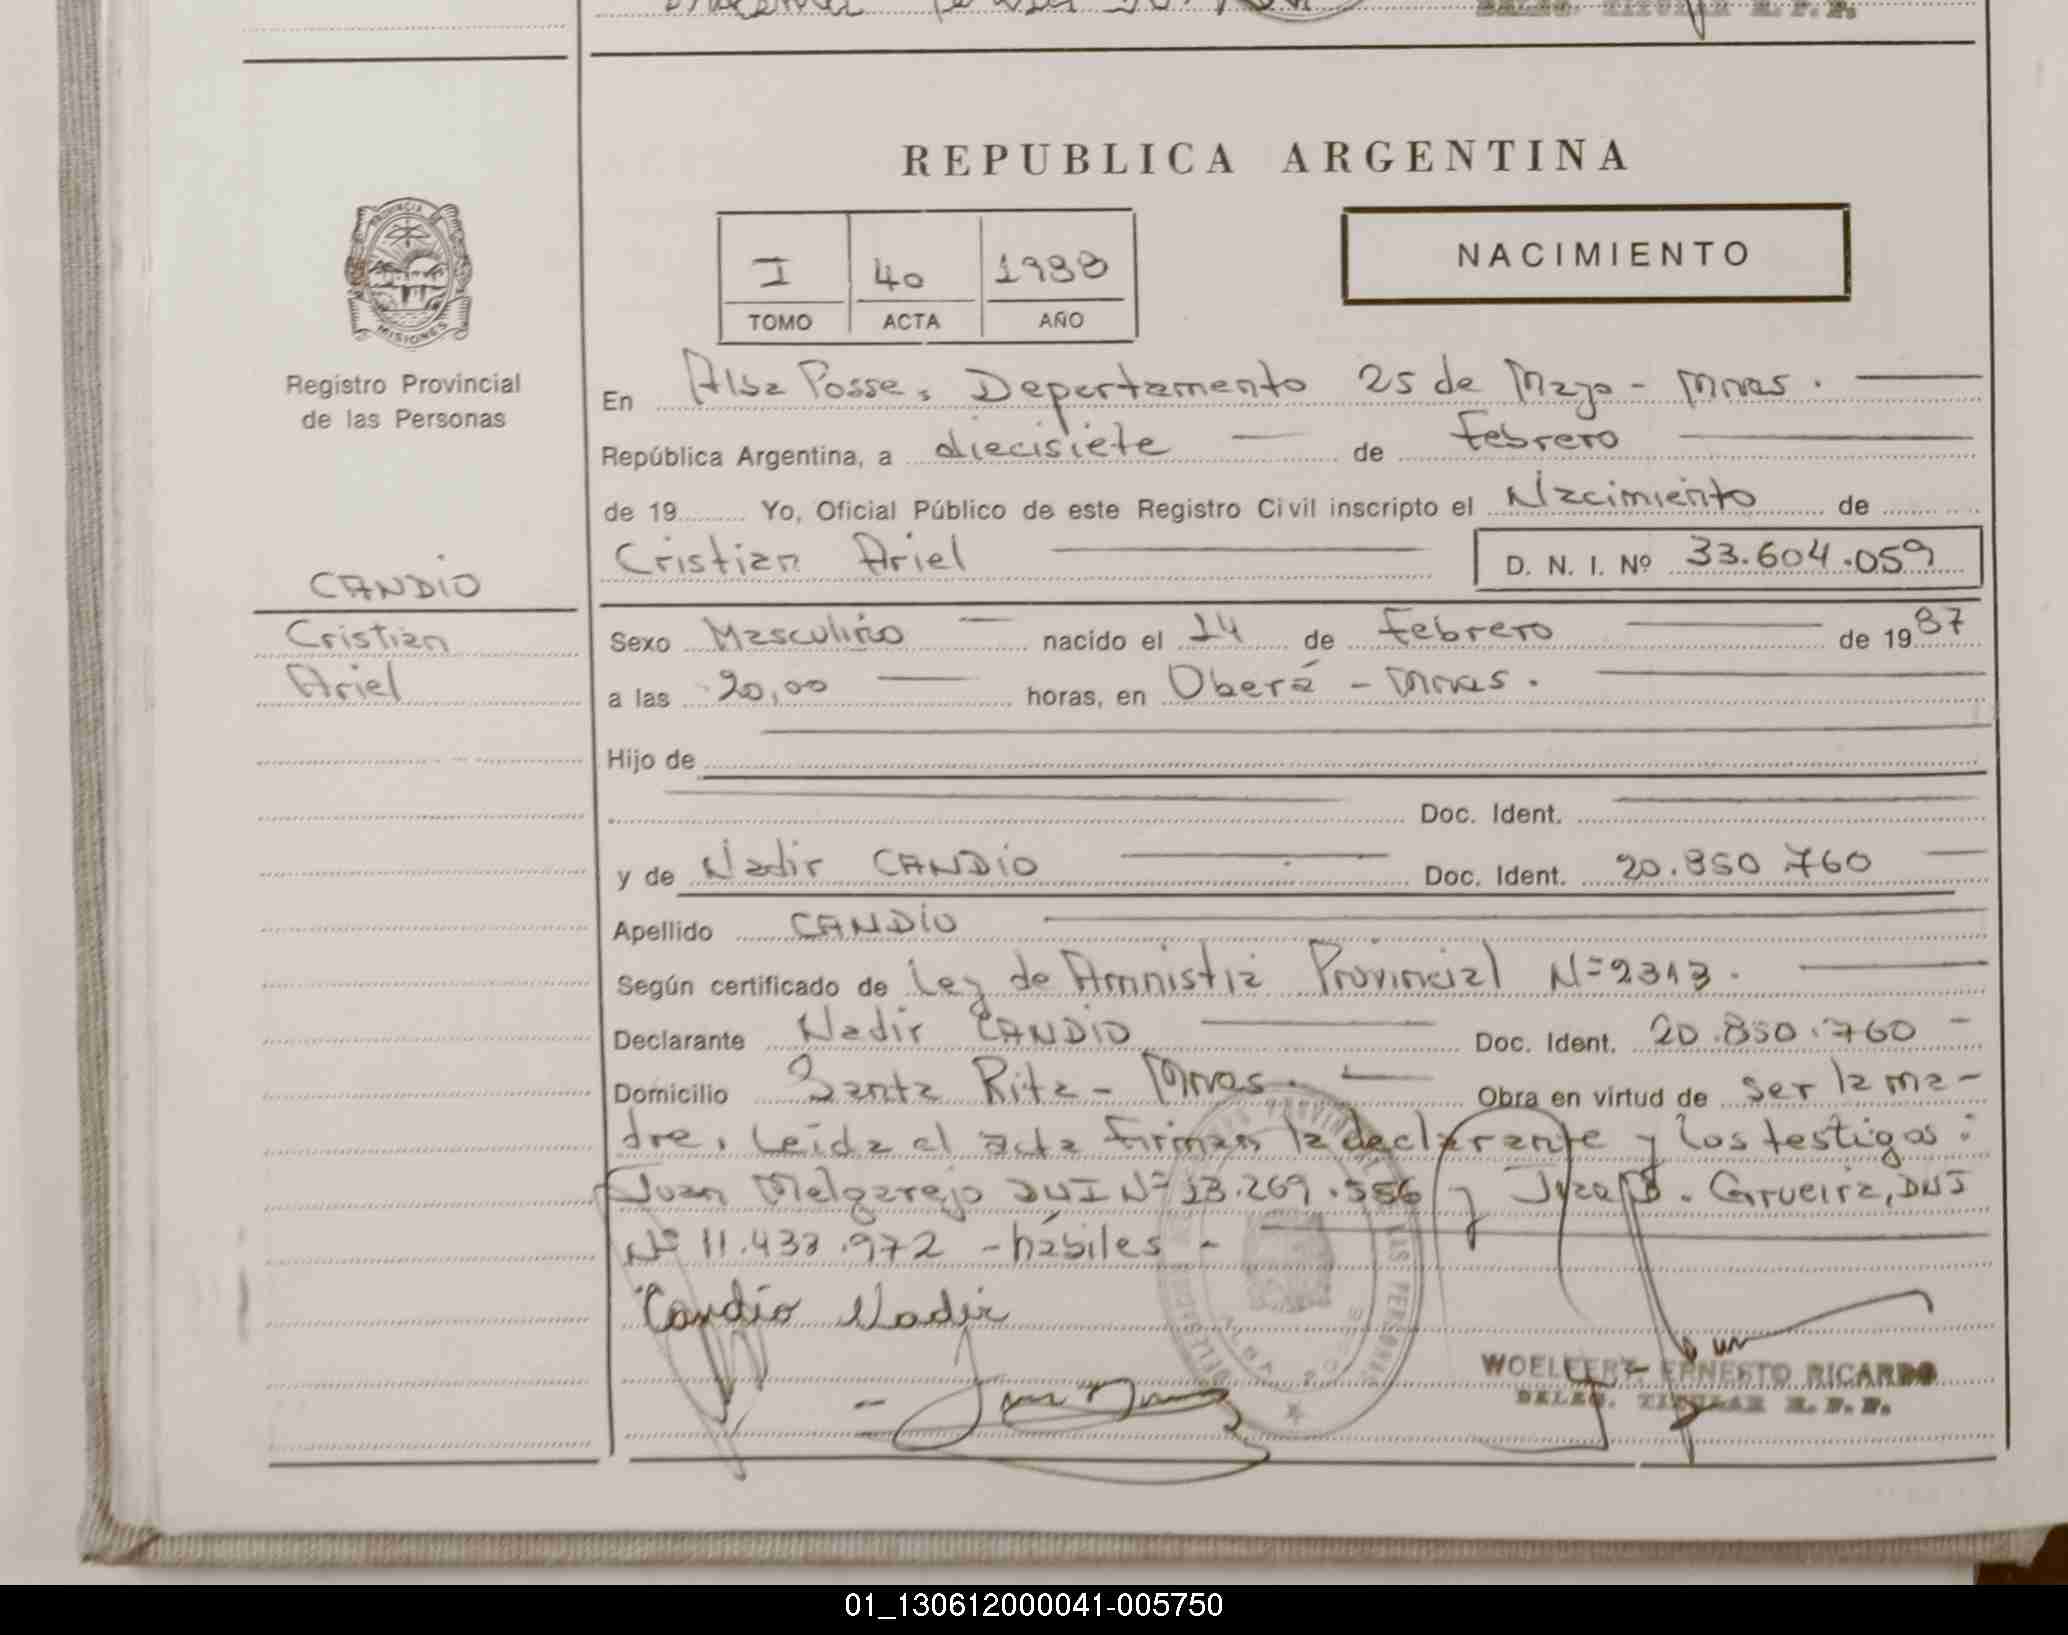 REPUBLICA ARGENTINA
PROVINCIA DE
MISIONES
Registro Provincial
de las Personas
I 40 1988
TOMO ACTA AÑO
NACIMIENTO
En Alba Posse, Departamento 25 de Mayo - Mnes.
República Argentina, a diecisiete de Febrero
de 19 Yo, Oficial Público de este Registro Civil inscripto el Nacimiento de
Cristian Ariel D. N. I. Nº 33.604.059
CANDIO
Cristian
Ariel
Sexo Masculino nacido el 14 de Febrero de 1987
a las 20,00 horas, en Oberá - Mnes.
Hijo de
Doc. Ident.
y de Nadir CANDIO Doc. Ident. 20.850.760
Apellido CANDIO
Según certificado de Ley de Amnistia Provincial N=2313.
Declarante Nadir CANDIO Doc. Ident. 20.850.760 -
Domicilio Santa Rita - Mnes. Obra en virtud de ser la ma-
dre. Leída el acta firman la declarante y los testigos:
Juan Melgarejo DNI Nº 13.269.556 y B. Carueira, DNI
Nº 11.433.972 - hábiles -
Candio Nadir
WOELFERT ERNESTO RICARDO
DELEG. TITULAR R. P. P.
01_130612000041-005750